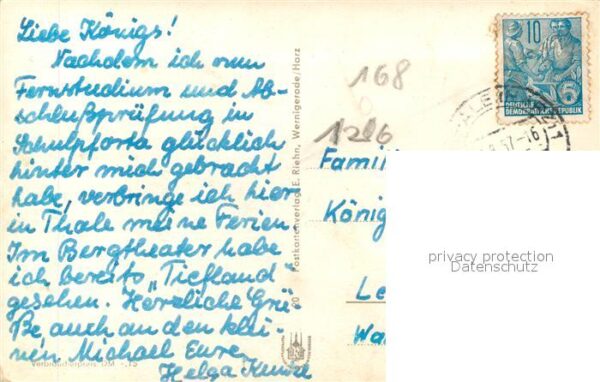 Liebe Königs!
Nachdem ich nun
Fernstudium und Ab-
schlußprüfung in
Schulpforta glücklich
hinter mich gebracht
habe, verbringe ich hier
in Thale meine Ferien.
Im Bergtheater habe
ich bereits „Tiefland"
gesehen. Herzliche Grü-
ße, auch an den klei-
nen Michael Eure
Helga
Verbraucherpreis DM -,15
Postkartenverlag E. Riehn, Wernigerode/Harz
168
1216
10
DEUTSCHE
DEMOKRATISCHE REPUBLIK
57-16
Famili
König
Le
privacy protection
Datenschutz